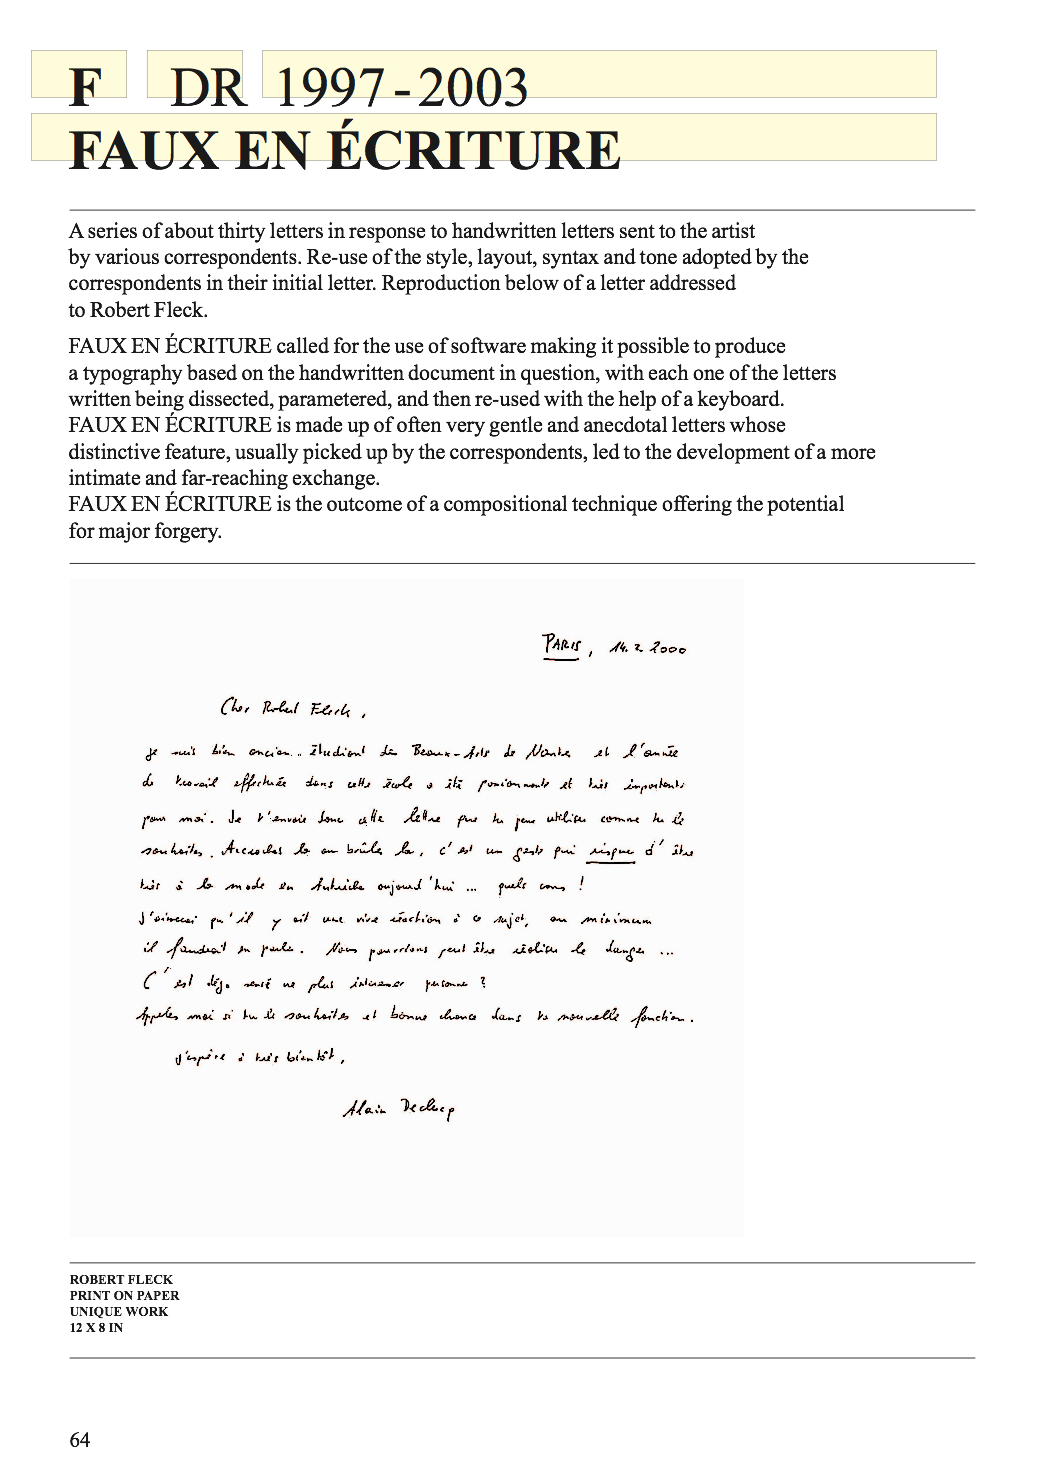 F DR 1997-2003
FAUX EN ÉCRITURE
A series of about thirty letters in response to handwritten letters sent to the artist
by various correspondents. Re-use of the style, layout, syntax and tone adopted by the
correspondents in their initial letter. Reproduction below of a letter addressed
to Robert Fleck.
FAUX EN ÉCRITURE called for the use of software making it possible to produce
a typography based on the handwritten document in question, with each one of the letters
written being dissected, parametered, and then re-used with the help of a keyboard.
FAUX EN ÉCRITURE is made up of often very gentle and anecdotal letters whose
distinctive feature, usually picked up by the correspondents, led to the development of a more
intimate and far-reaching exchange.
FAUX EN ÉCRITURE is the outcome of a compositional technique offering the potential
for major forgery.
PARIS, 14. 2. 2000
Cher Robert Fleck,
je suis bien ancien.. étudiant des Beaux-Arts de Nantes et l'année
de travail effectuée dans cette école a été passionnante et très importante
pour moi. Je t'envoie donc cette lettre que tu peux utiliser comme tu le
souhaites. Accroches la ou brûle la, c'est un geste qui risque d'être
très à la mode en Autriche aujourd'hui ... quels cons !
J'aimerai qu'il y ait une vive réaction à ce sujet, au minimum
il faudrait en parler. Nous pourrions peut être réaliser le danger ...
C'est déjà sensé ne plus intéresser personne ?
Appeles moi si tu le souhaites et bonne chance dans ta nouvelle fonction.
J'espère à très bientôt,
Alain Declercq
ROBERT FLECK
PRINT ON PAPER
UNIQUE WORK
12 X 8 IN
64